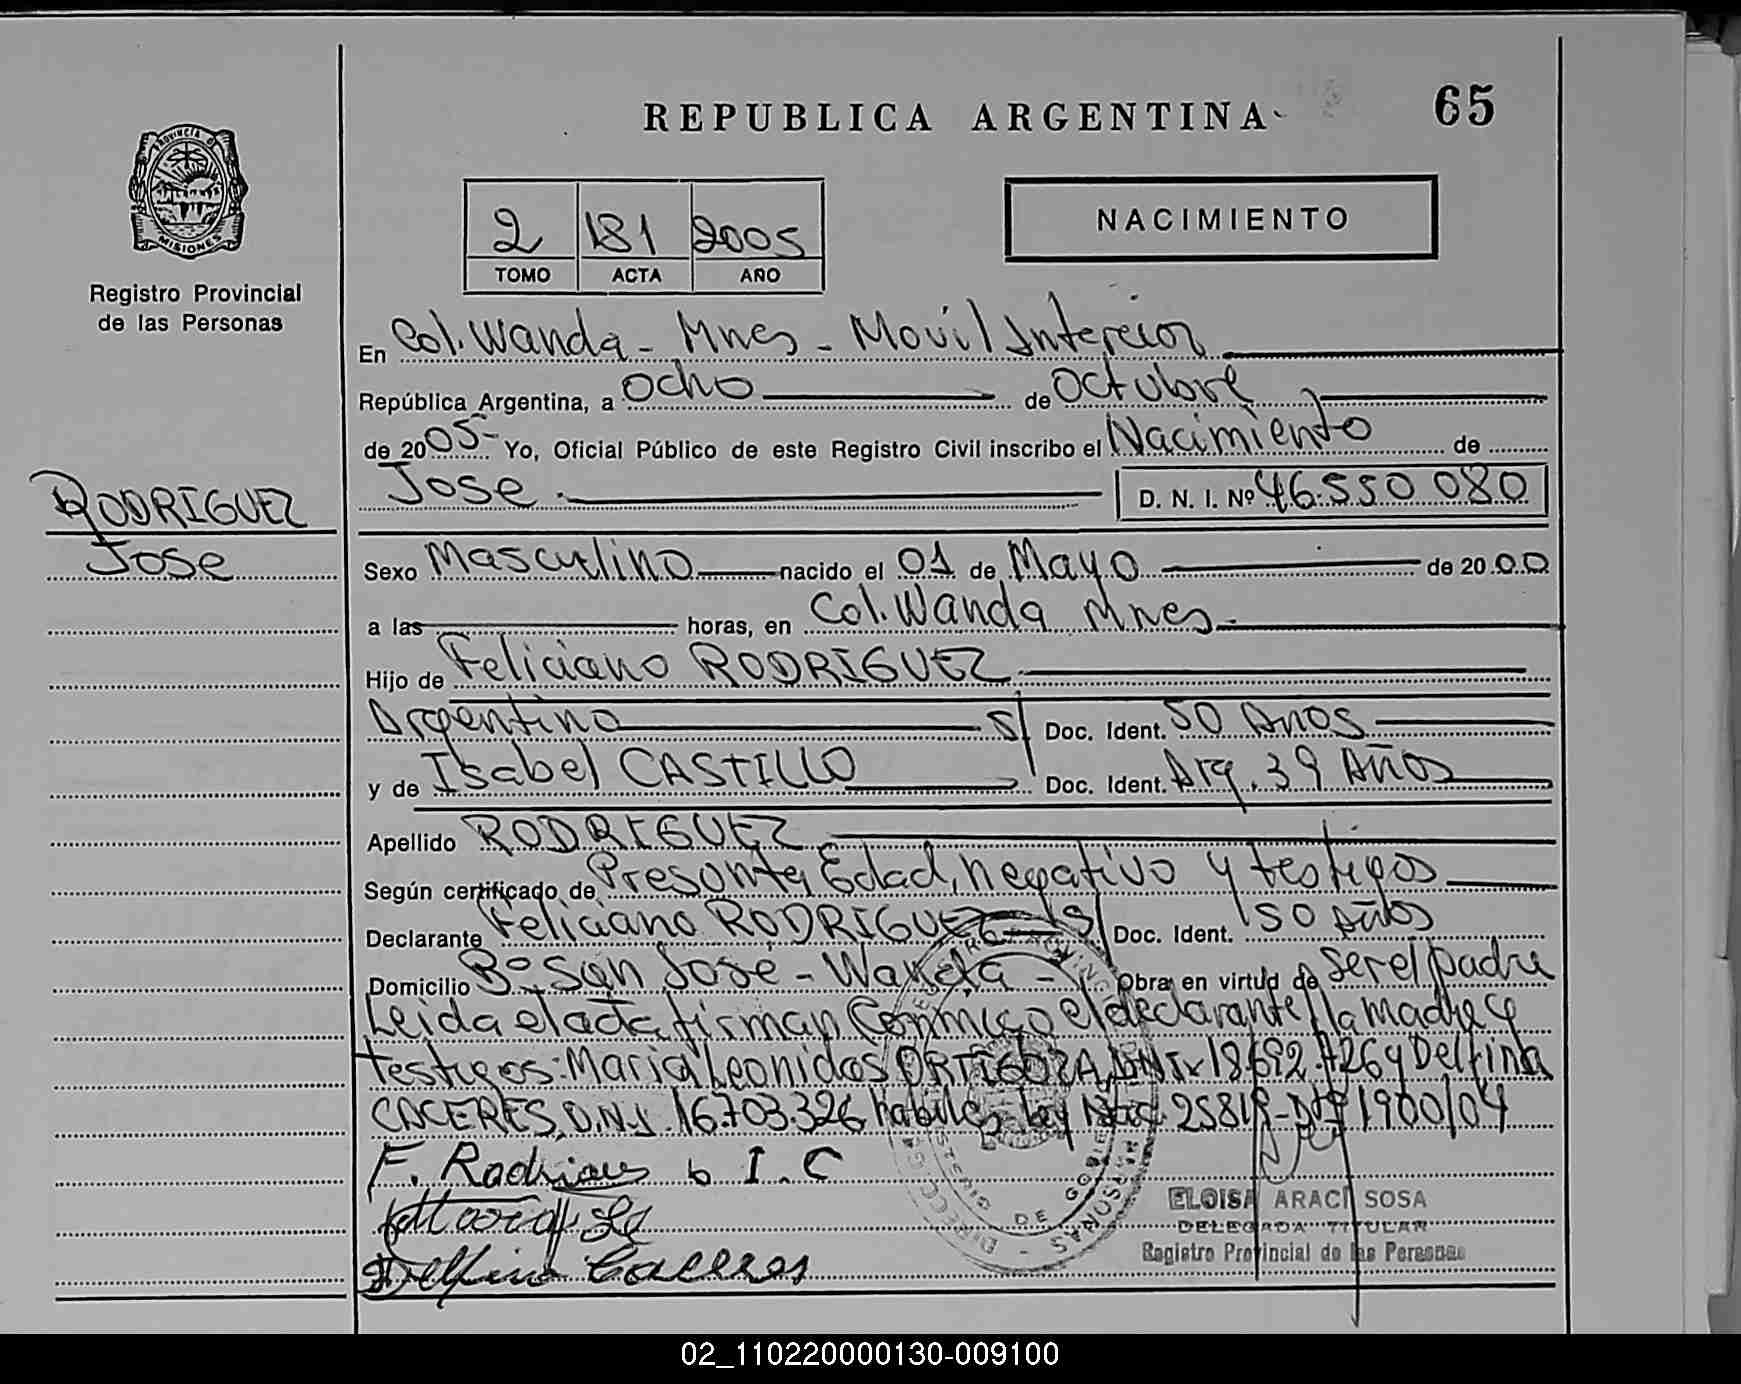 REPUBLICA ARGENTINA
65
PROVINCIA D
MISIONES
Registro Provincial
de las Personas
2 181 2005
TOMO ACTA AÑO
NACIMIENTO
En Col. Wanda - Mnes - Movil Interior
República Argentina, a ocho de Octubre
de 2005 - Yo, Oficial Público de este Registro Civil inscribo el Nacimiento de
Jose D. N. I. Nº 46.550 080
RODRIGUEZ
Jose
Sexo Masculino nacido el 01 de Mayo de 2000
a las horas, en Col. Wanda Mnes -
Hijo de Feliciano RODRIGUEZ
Argentino S/ Doc. Ident. 50 Anos
y de Isabel CASTILLO Doc. Ident. Arg. 39 Años
Apellido RODRIGUEZ
Según certificado de Presunta Edad, negativo y testigos
Declarante Feliciano RODRIGUEZ S/ Doc. Ident. 50 Años
Domicilio Bº San José - Wanda - Obra en virtud de ser el padre
Leida el acta firman Conmigo el declarante, la madre y
testigos: Maria Leonidas ORTIGOZA, DNI. 18.692.726 y Delfina
CACERES, D.N.I. 16.703.326 habiles Ley Nac. 25819 - Dto 1900/04
F. Rodrigues I. C
Delfina Caceres
ELOISA ARACI SOSA
DELEGADA TITULAR
Registro Provincial de las Personas
02_110220000130-009100